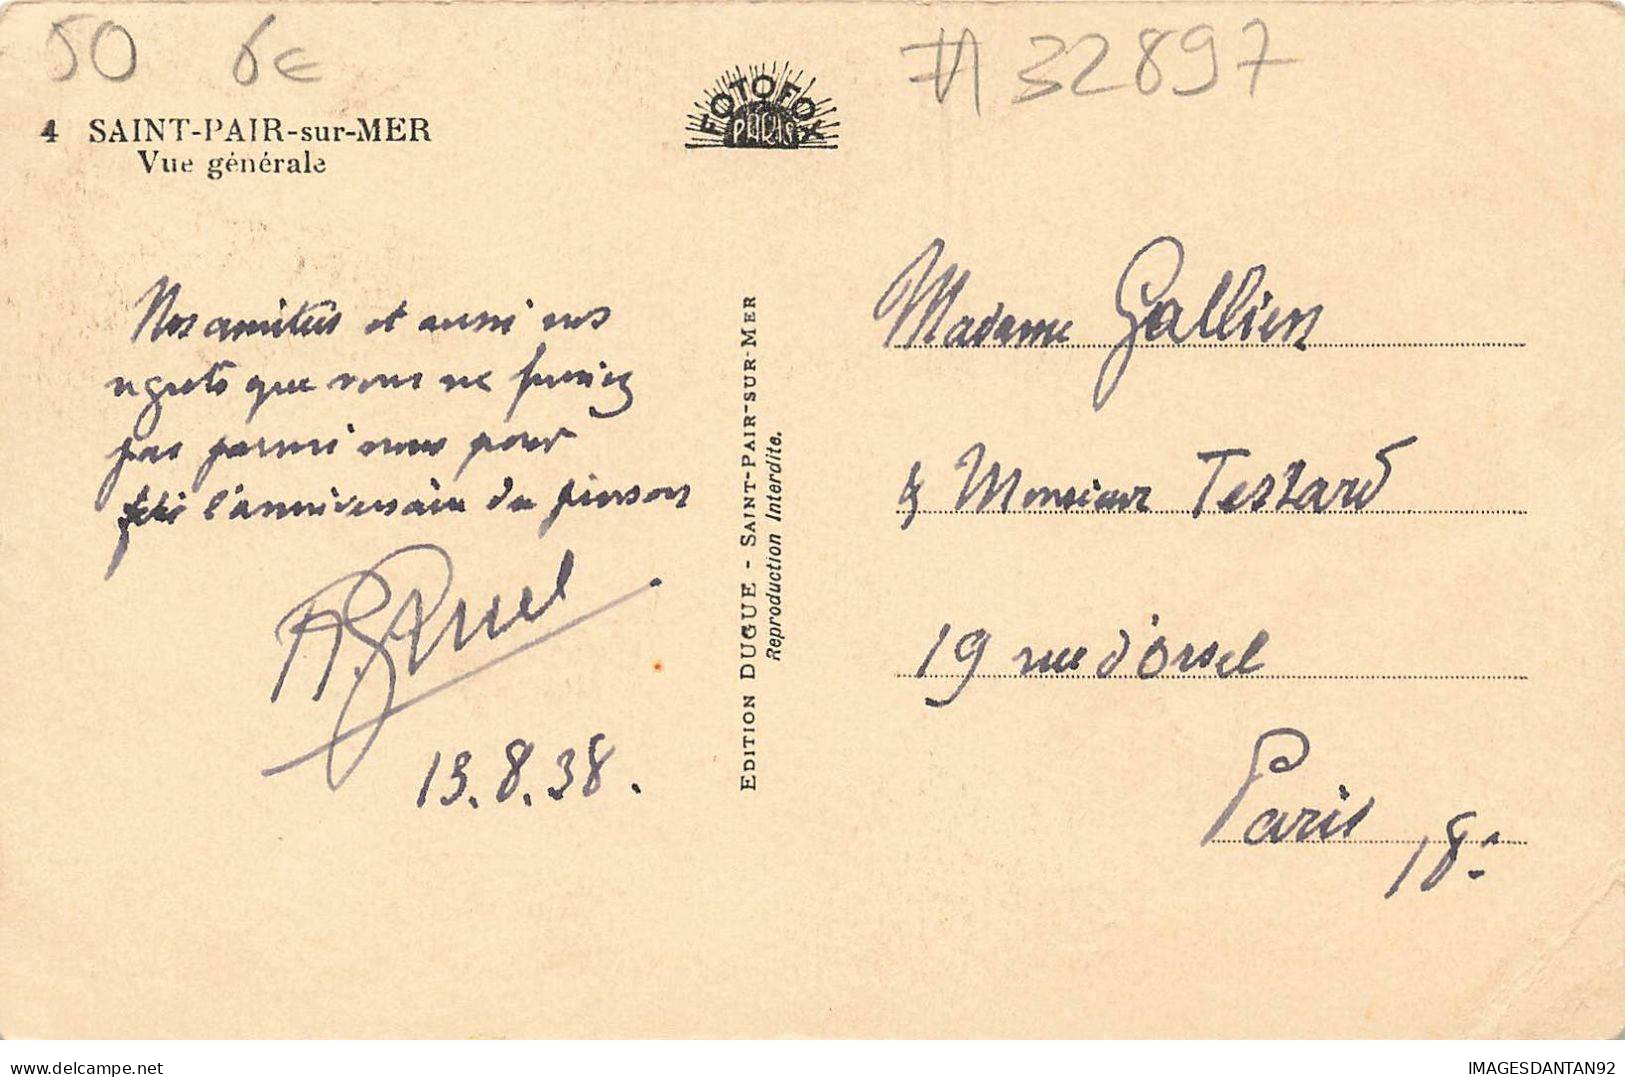 50 6€
#32897
4 SAINT-PAIR-sur-MER
Vue générale
FOTOFOX
PARIS
Nos amitiés et aussi nos
regrets que vous ne fussiez
pas parmi nous pour
l'anniversaire du pinson
13.8.38.
EDITION DUGUE - SAINT-PAIR-SUR-MER
Reproduction Interdite.
Madame Gallien
& Monsieur Testard
19 rue d'Orsel
Paris 18e
IMAGESDANTAN92